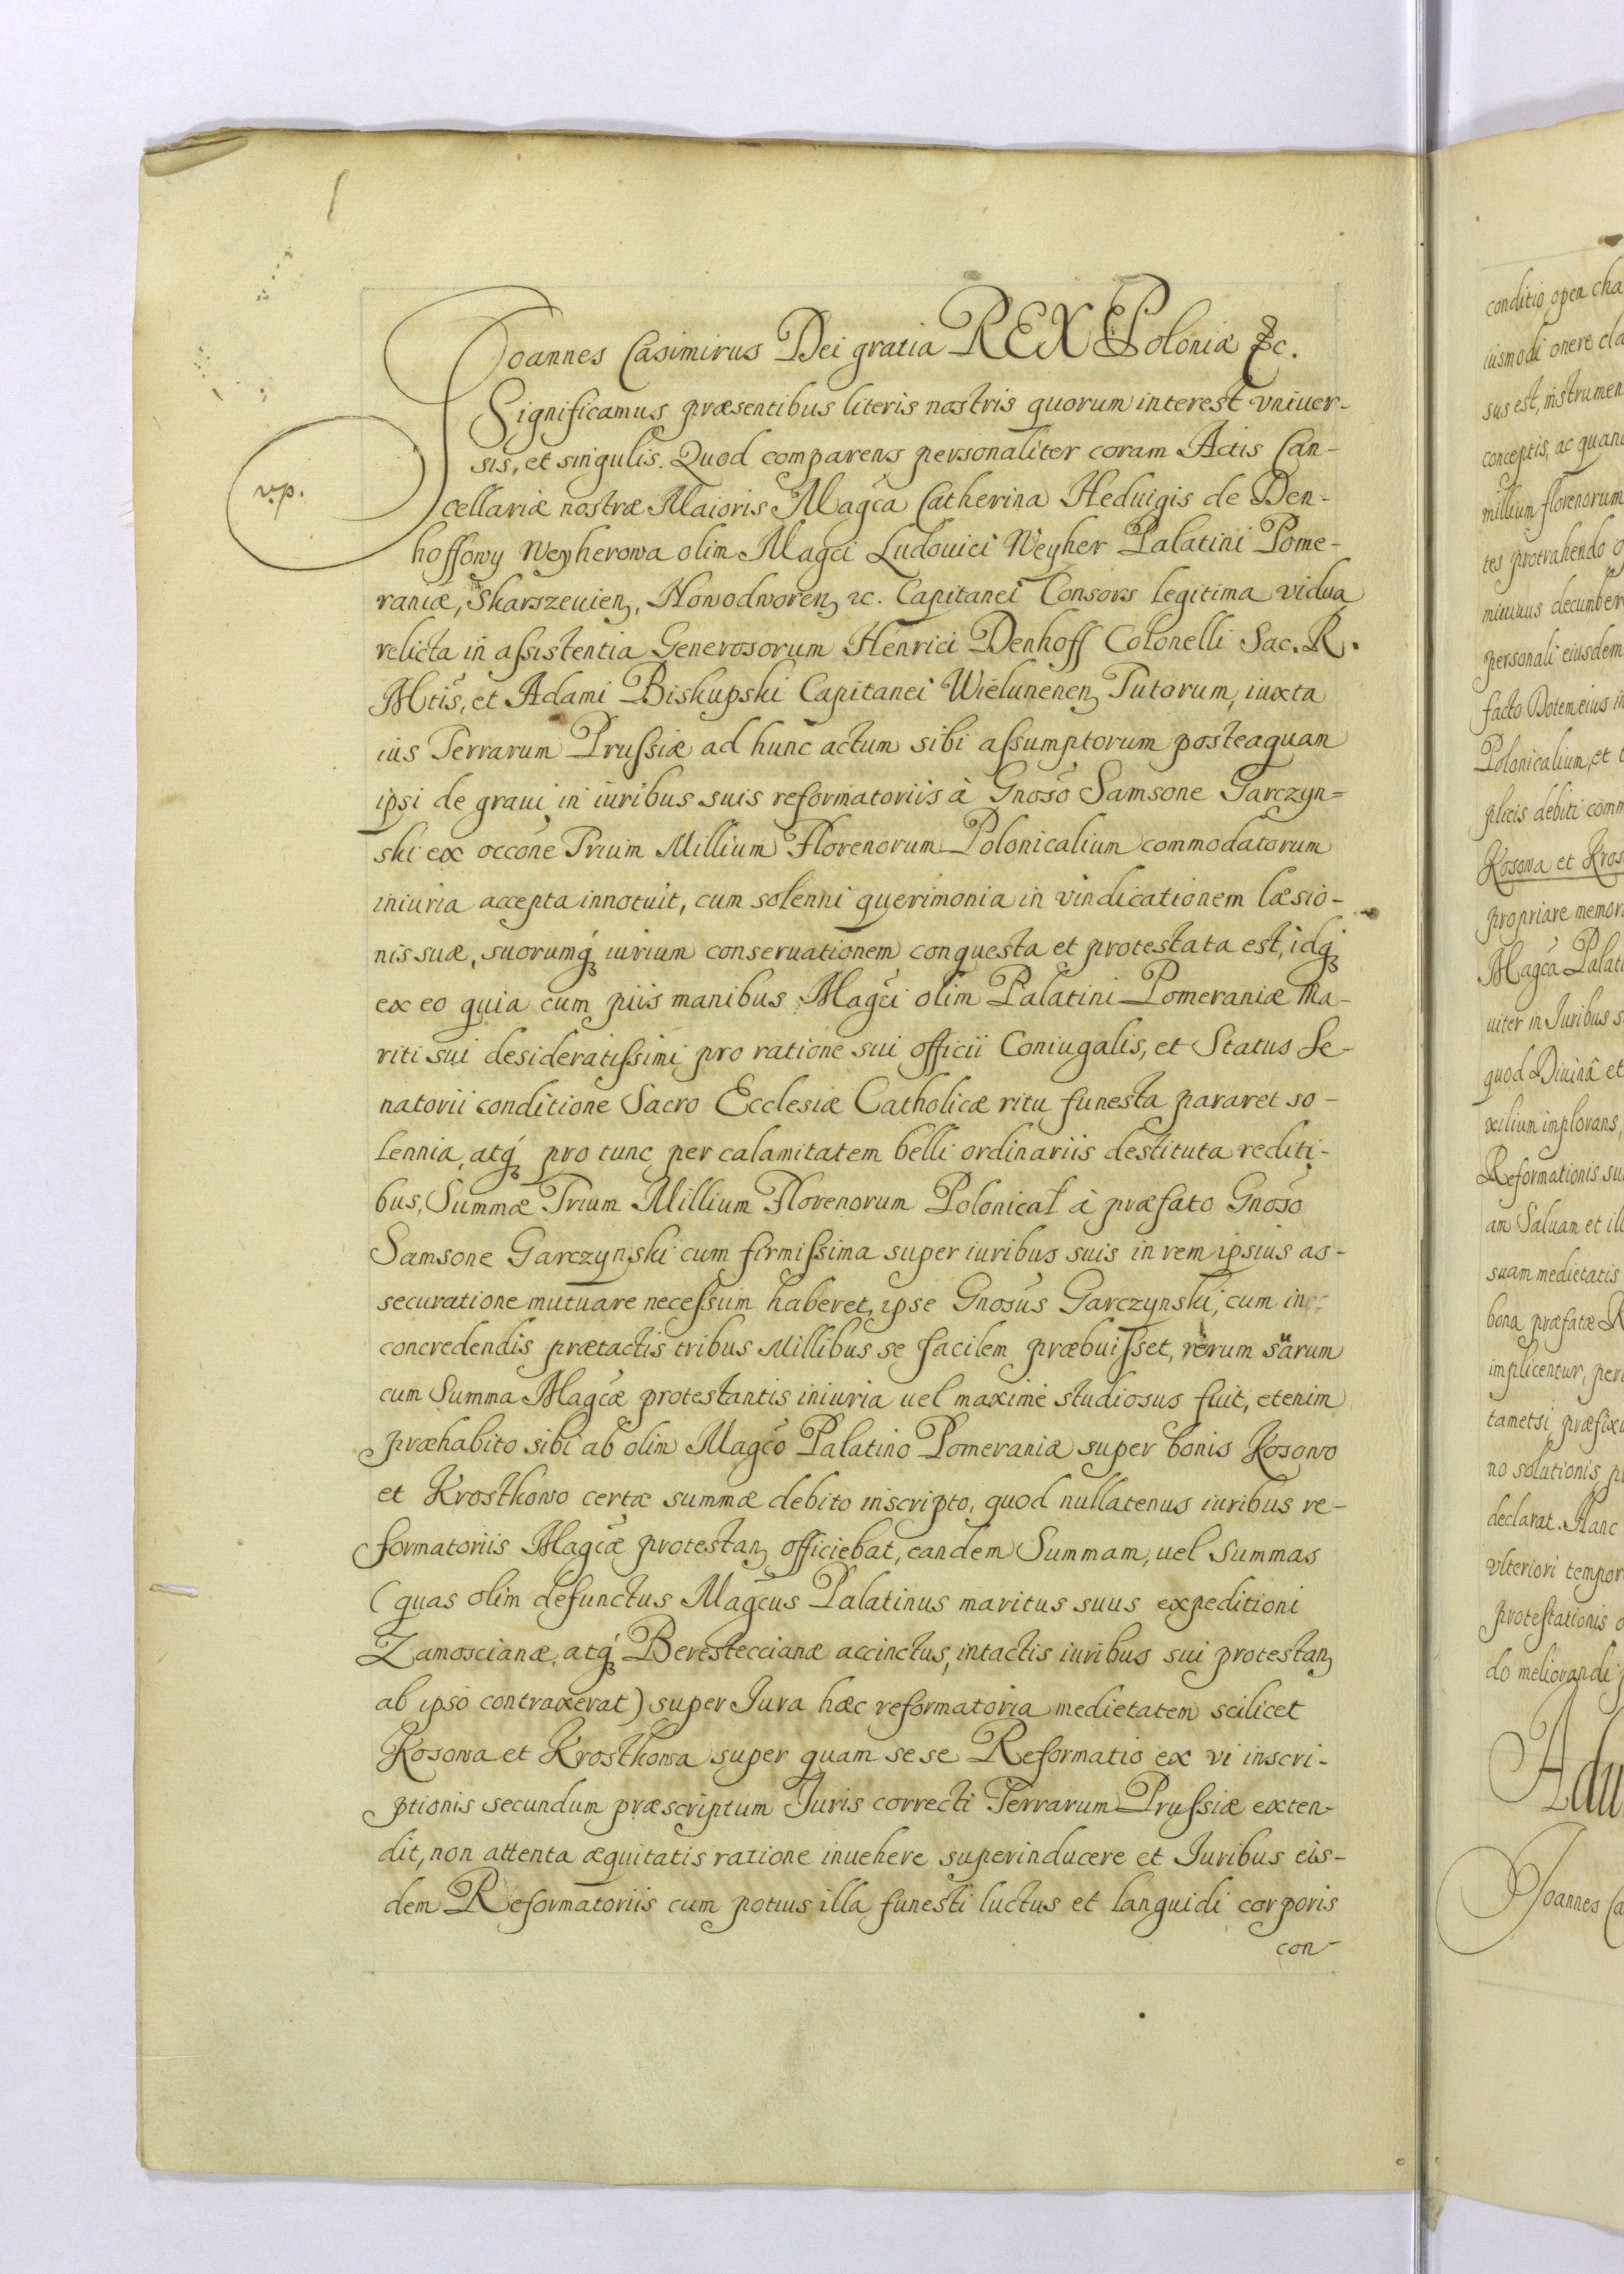 Joannes Casimirus Dei gratia REX Poloniæ &c.
Significamus præsentibus literis nostris quorum interest vniuer-
sis, et singulis. Quod comparens personaliter coram Actis Can-
v.p.
cellariæ nostræ Maioris Magca Catherina Heduigis de Den-
hoffowy Weyherowa olim Magci Ludouici Weyher Palatini Pome-
raniæ, Skarszeuien, Nowodworen, &c. Capitanei Consors legitima vidua
relicta in assistentia Generosorum Henrici Denhoff Colonelli Sac. R.
Mtis, et Adami Biskupski Capitanei Wielunenen Tutorum, iuxta
ius Terrarum Prussiæ ad hunc actum sibi assumptorum posteaquam
ipsi de graui in iuribus suis reformatoriis à Gnoso Samsone Garczyn=
ski ex occone Trium Millium Florenorum Polonicalium commodatorum
iniuria accepta innotuit, cum solenni querimonia in vindicationem læsio-
nis suæ, suorumq; iurium conseruationem conquesta et protestata est, idq;
ex eo quia cum piis manibus Magci olim Palatini Pomeraniæ Ma-
riti sui desideratissimi pro ratione sui officii Coniugalis, et Status Se-
natorii conditione Sacro Ecclesiæ Catholicæ ritu funesta pararet so-
lennia, atq; pro tunc per calamitatem belli ordinariis destituta rediti-
bus, Summæ Trium Millium Florenorum Polonical à præfato Gnoso
Samsone Garczynski cum firmissima super iuribus suis in rem ipsius as-
securatione mutuare necessum haberet, ipse Gnosus Garczynski, cum in
concredendis prætactis tribus Millibus se facilem præbuisset, rerum suarum
cum Summa Magcæ protestantis iniuria uel maximè studiosus fuit, etenim
præhabito sibi ab olim Magco Palatino Pomeraniæ super bonis Kosowo
et Krosthowo certæ summæ debito inscripto, quod nullatenus iuribus re-
formatoriis Magcæ protestan, officiebat, eandem Summam, uel Summas
(quas olim defunctus Magcus Palatinus maritus suus expeditioni
Zamoscianæ, atq; Berestecciane accinctus, intactis iuribus sui protestan,
ab ipso contraxerat) super Jura hæc reformatoria medietatem scilicet
Kosowa et Krosthowa super quam sese Reformatio ex vi inscri-
ptionis secundum præscriptum Juris correcti Terrarum Prussiæ exten-
dit, non attenta æquitatis ratione inuehere superinducere et Juribus eis-
dem Reformatoriis cum potius illa funesti luctus et languidi corporis
con-
conditio open cha
iusmodi onere cla
sus est, instrumen
conceptis, ac quan
millium florenorum
tes protrahendo
minius decumben
personali eiusdem
facto Dotem eius in
Polonicalium, et
plicis debiti comm
Kosowa et Kros
propriare memor
Magca Palat
uiter in Juribus s
quod Diuinâ et
xilium implorans,
Reformationis su
an Saluam et il
suam medietatis
bona præfatæ
implicentur, per
tametsi præfix
no solutionis, p
declarat. Hanc
vlteriori tempor
protestationis
do meliorandi
Joannes Ca